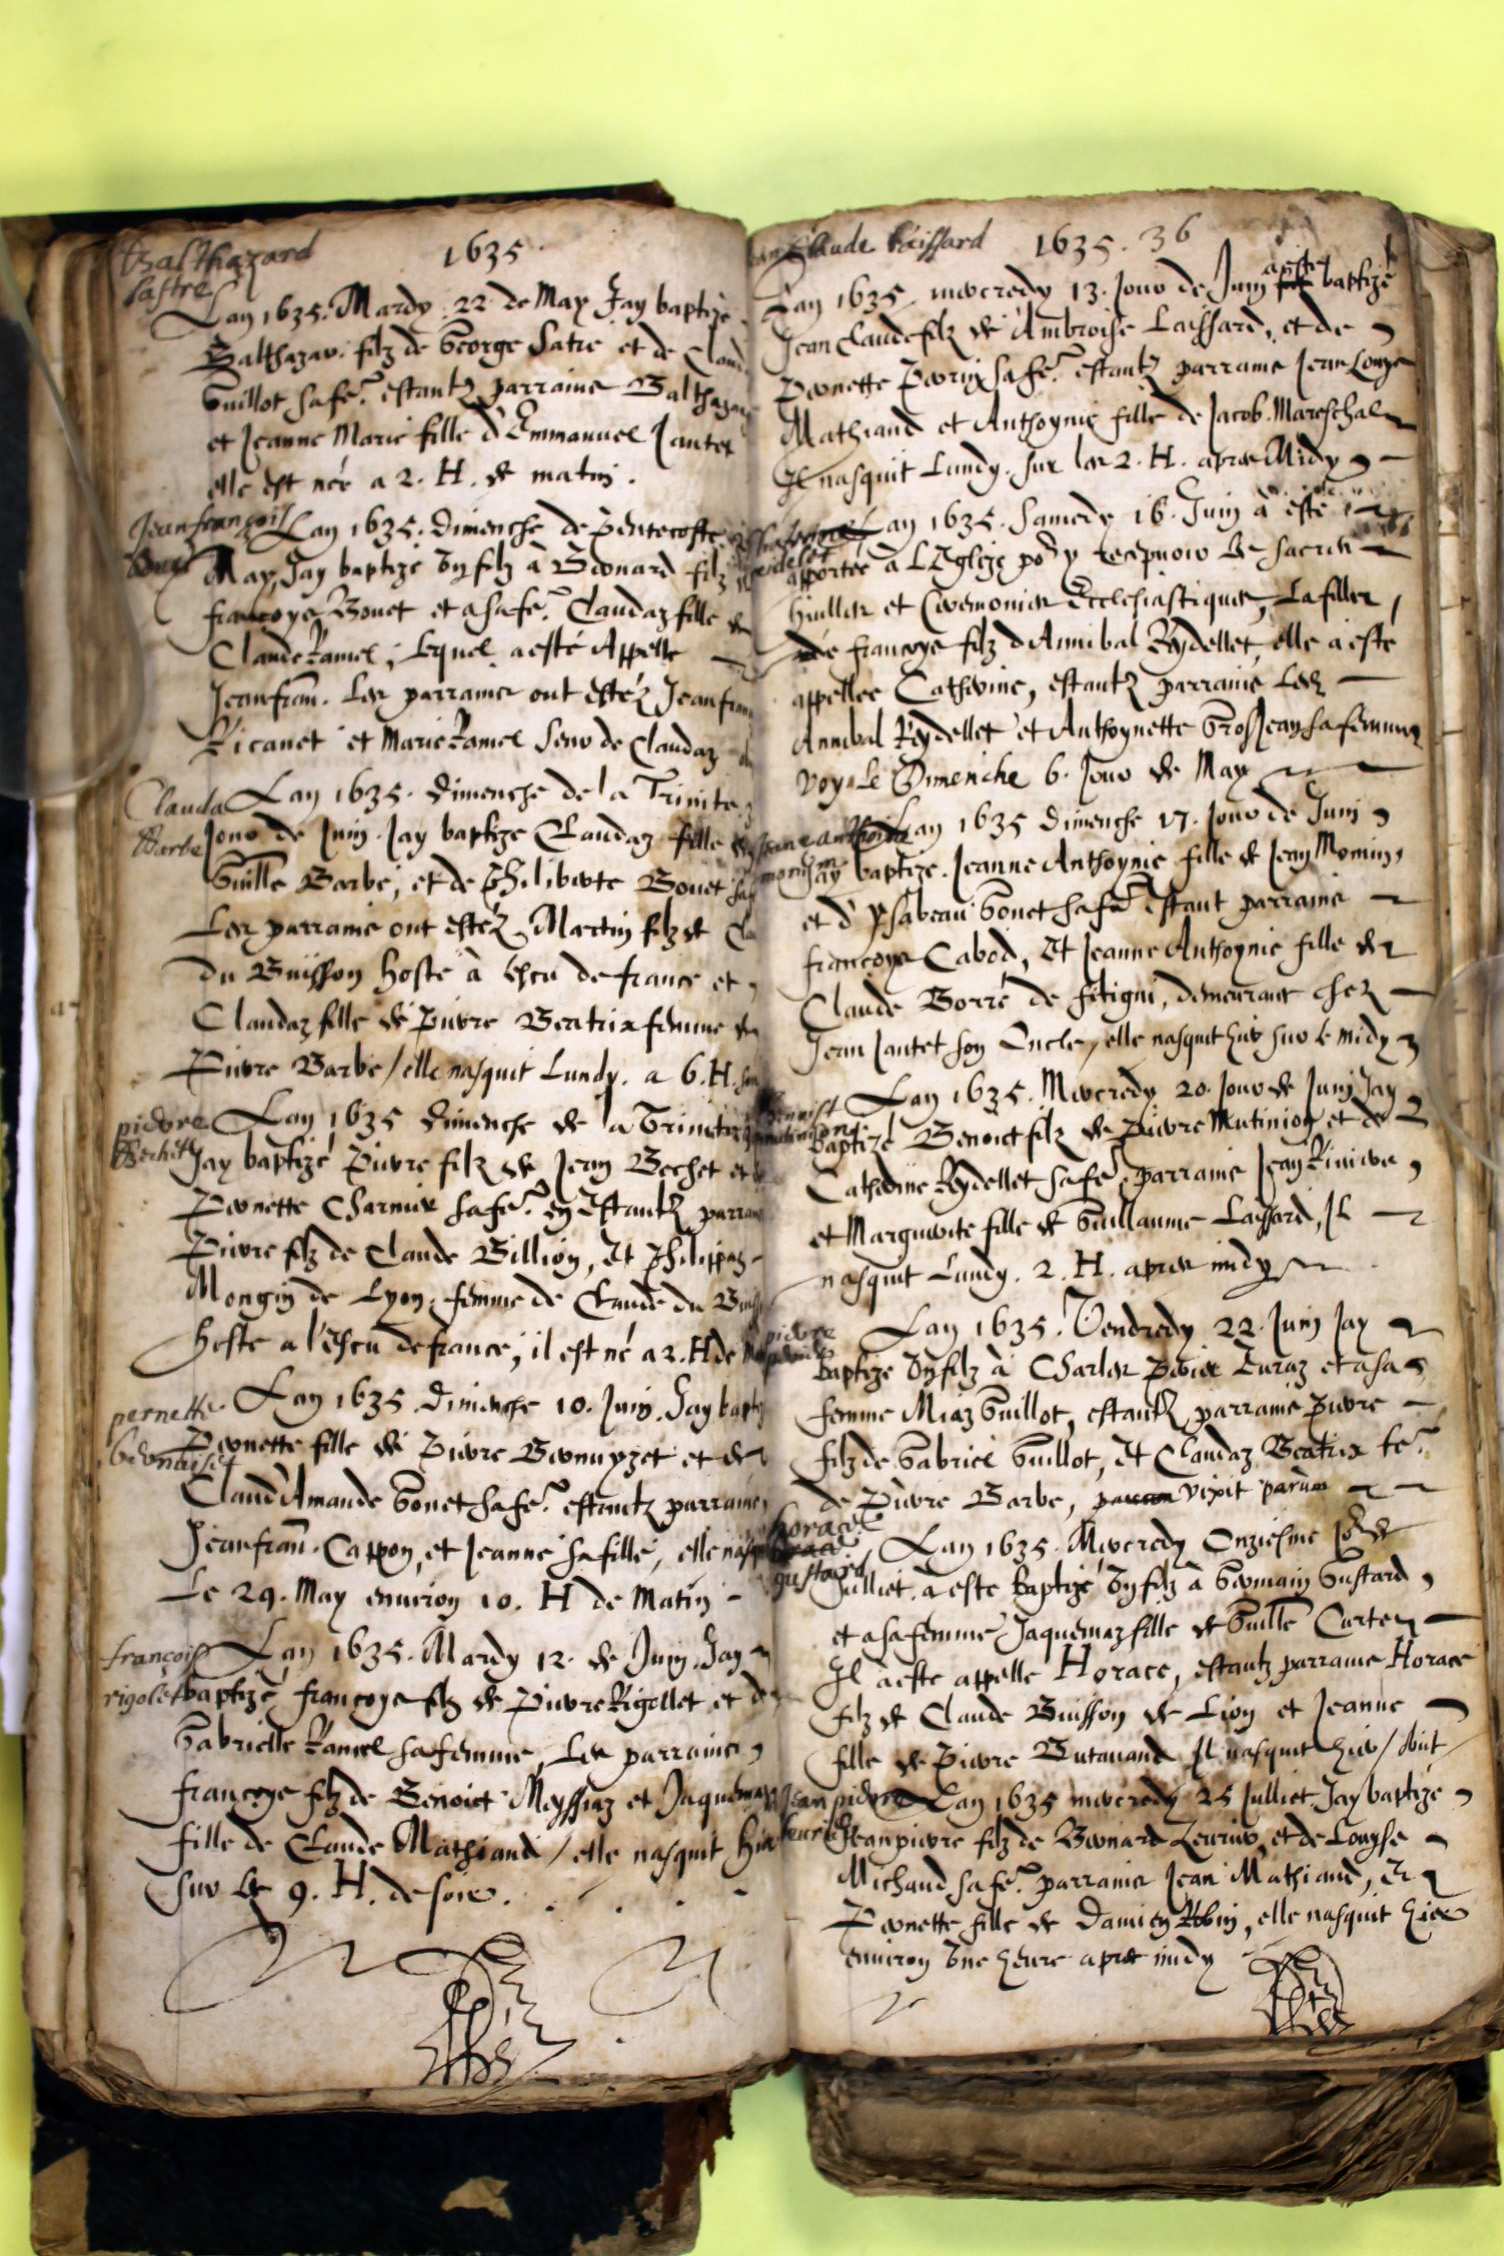 Balthazard
sastre
1635.
Lan 1635. Mardy 22 de May Jay baptizé
Balthazar filz de George Satre et de Claud
Guillot sa fe. estantz parraine Balthazar
et Jeanne Marie fille d'Emmanuel Jantet
elle est née a 2. H. de matin.
Jean françois
Lan 1635. Dimenche de Pentecoste
May, Jay baptizé Un filz à Bernard filz de
françoys Bouet et a sa fe. Claudaz fille de
Claude Ramel, Lequel a esté Appelle
Jeanfran. Les parraines ont estéz Jeanfran
Ricanet et Marie Ramel seur de Claudaz
Clauda
Barbe
Lan 1635. Dimenche de la Trinite
Jour de Juin. Jay baptizé Claudaz fille de
Guille Barbe, et de Philiberte Bouet sa
Les parraine ont estéz Martin filz de Cla
du Buisson hoste à Escu de france et
Claudaz fille de Pierre Beatrix femme de
Pierre Barbe / elle nasquit Lundy. a 6. H.
pierre
Bechet
Lan 1635 dimenche de la Trinité
Jay baptizé Pierre filz de Jean Bechet et
Pernette Charnier sa fe. en Estantz parrai
Pierre filz de Claude Billion, et Philippaz
Mongin de Lyon, femme de Claude du Buiss
hoste a l'Escu de france, il est né a 2. H de
pernette
Lan 1635 dimenche 10. Juin. Jay baptiz
Pernette fille de Pierre Bernuyzet et de
Claud'Amande Gonet sa fe. estantz parraine
Jeanfran. Cappon, et Jeanne sa fille, elle nasq
Le 29. May environ 10. H de Matin
françois
rigolet
Lan 1635. Mardy 12. de Juin. Jay
baptizé françoys filz de Pierre Rigollet et de
Gabrielle Ramel sa femme, Les parraine
françoys filz de Benoict Meyssiaz et Jaquemaz
fille de Claude Mathiand / elle nasquit hier
sur les 9. H. de soir.
Claude laissard
1635. 36
Lan 1635, mercredy 13. Jour de Juin a esté baptizé
Jean Claude filz de Ambroise Laissard, et de
Pernette Perrin sa fe. estantz parraine Jean Louys
Mathiand et Anthoynie fille de Jacob Mareschal
Il nasquit Lundy. sur les 2. H. apres Midy
Lan 1635. Samedy 16. Juin à esté
apportée à L'Eglize po y recepvoir les sacrés
huilles et Ceremonies Ecclesiastiques, La fille
de françoys filz d'Annibal Reydellet, elle a esté
appellee Catherine, estantz parraine Les
Annibal Reydellet et Anthoynette Grosjean sa femme
voy le Dimenche 6. Jour de May
Jeane anthoine
Lan 1635 Dimenche 17. Jour de Juin
Jay baptizé. Jeanne Anthoynie fille de Jean Monin
et d'Ysabeau Gonet sa fe Estant parraine
françoys Cabod, et Jeanne Anthoynie fille de
Claude Borré de fetigni, demeurant chez
Jean Jantet son Oncle, elle nasquit hier sur le midy
Lan 1635. Mercredy 20. Jour de Juin Jay
Baptizé Benoict filz de Pierre Mutinion et de
Catherine Reydellet sa fe, parraine Jean
et Marguerite fille de Guillaume Laissard, Il
nasquit Lundy. 2. H. apres midy
pierre
Lan 1635. Vendredy 22. Juin Jay
baptizé Un filz à Charles Perier Curaz et a sa
femme Miaz Guillot, estantz parraine Pierre
filz de Gabriel Guillot, et Claudaz Beatrix fe.
de Pierre Barbe, vixit parum
horace
gustard
Lan 1635. Mercredy Onziesme Jo de
Julliet à esté baptizé Un filz à Germain Gustard
et a sa femme Jaquemaz fille de Guille Curtet
Il a esté appelle Horace, estantz parraine Horace
filz de Claude Buisson de Lion et Jeanne
fille de Pierre Butavand Il nasquit hier
Jean pierre
Lan 1635 mercredy 25 Julliet Jay baptizé
Jeanpierre filz de Bernard et de Louyse
Michaud sa fe. parraine Jean Mathiand, et
Pernette fille de Damien Robin, elle nasquit hier
environ Une heure apres midy